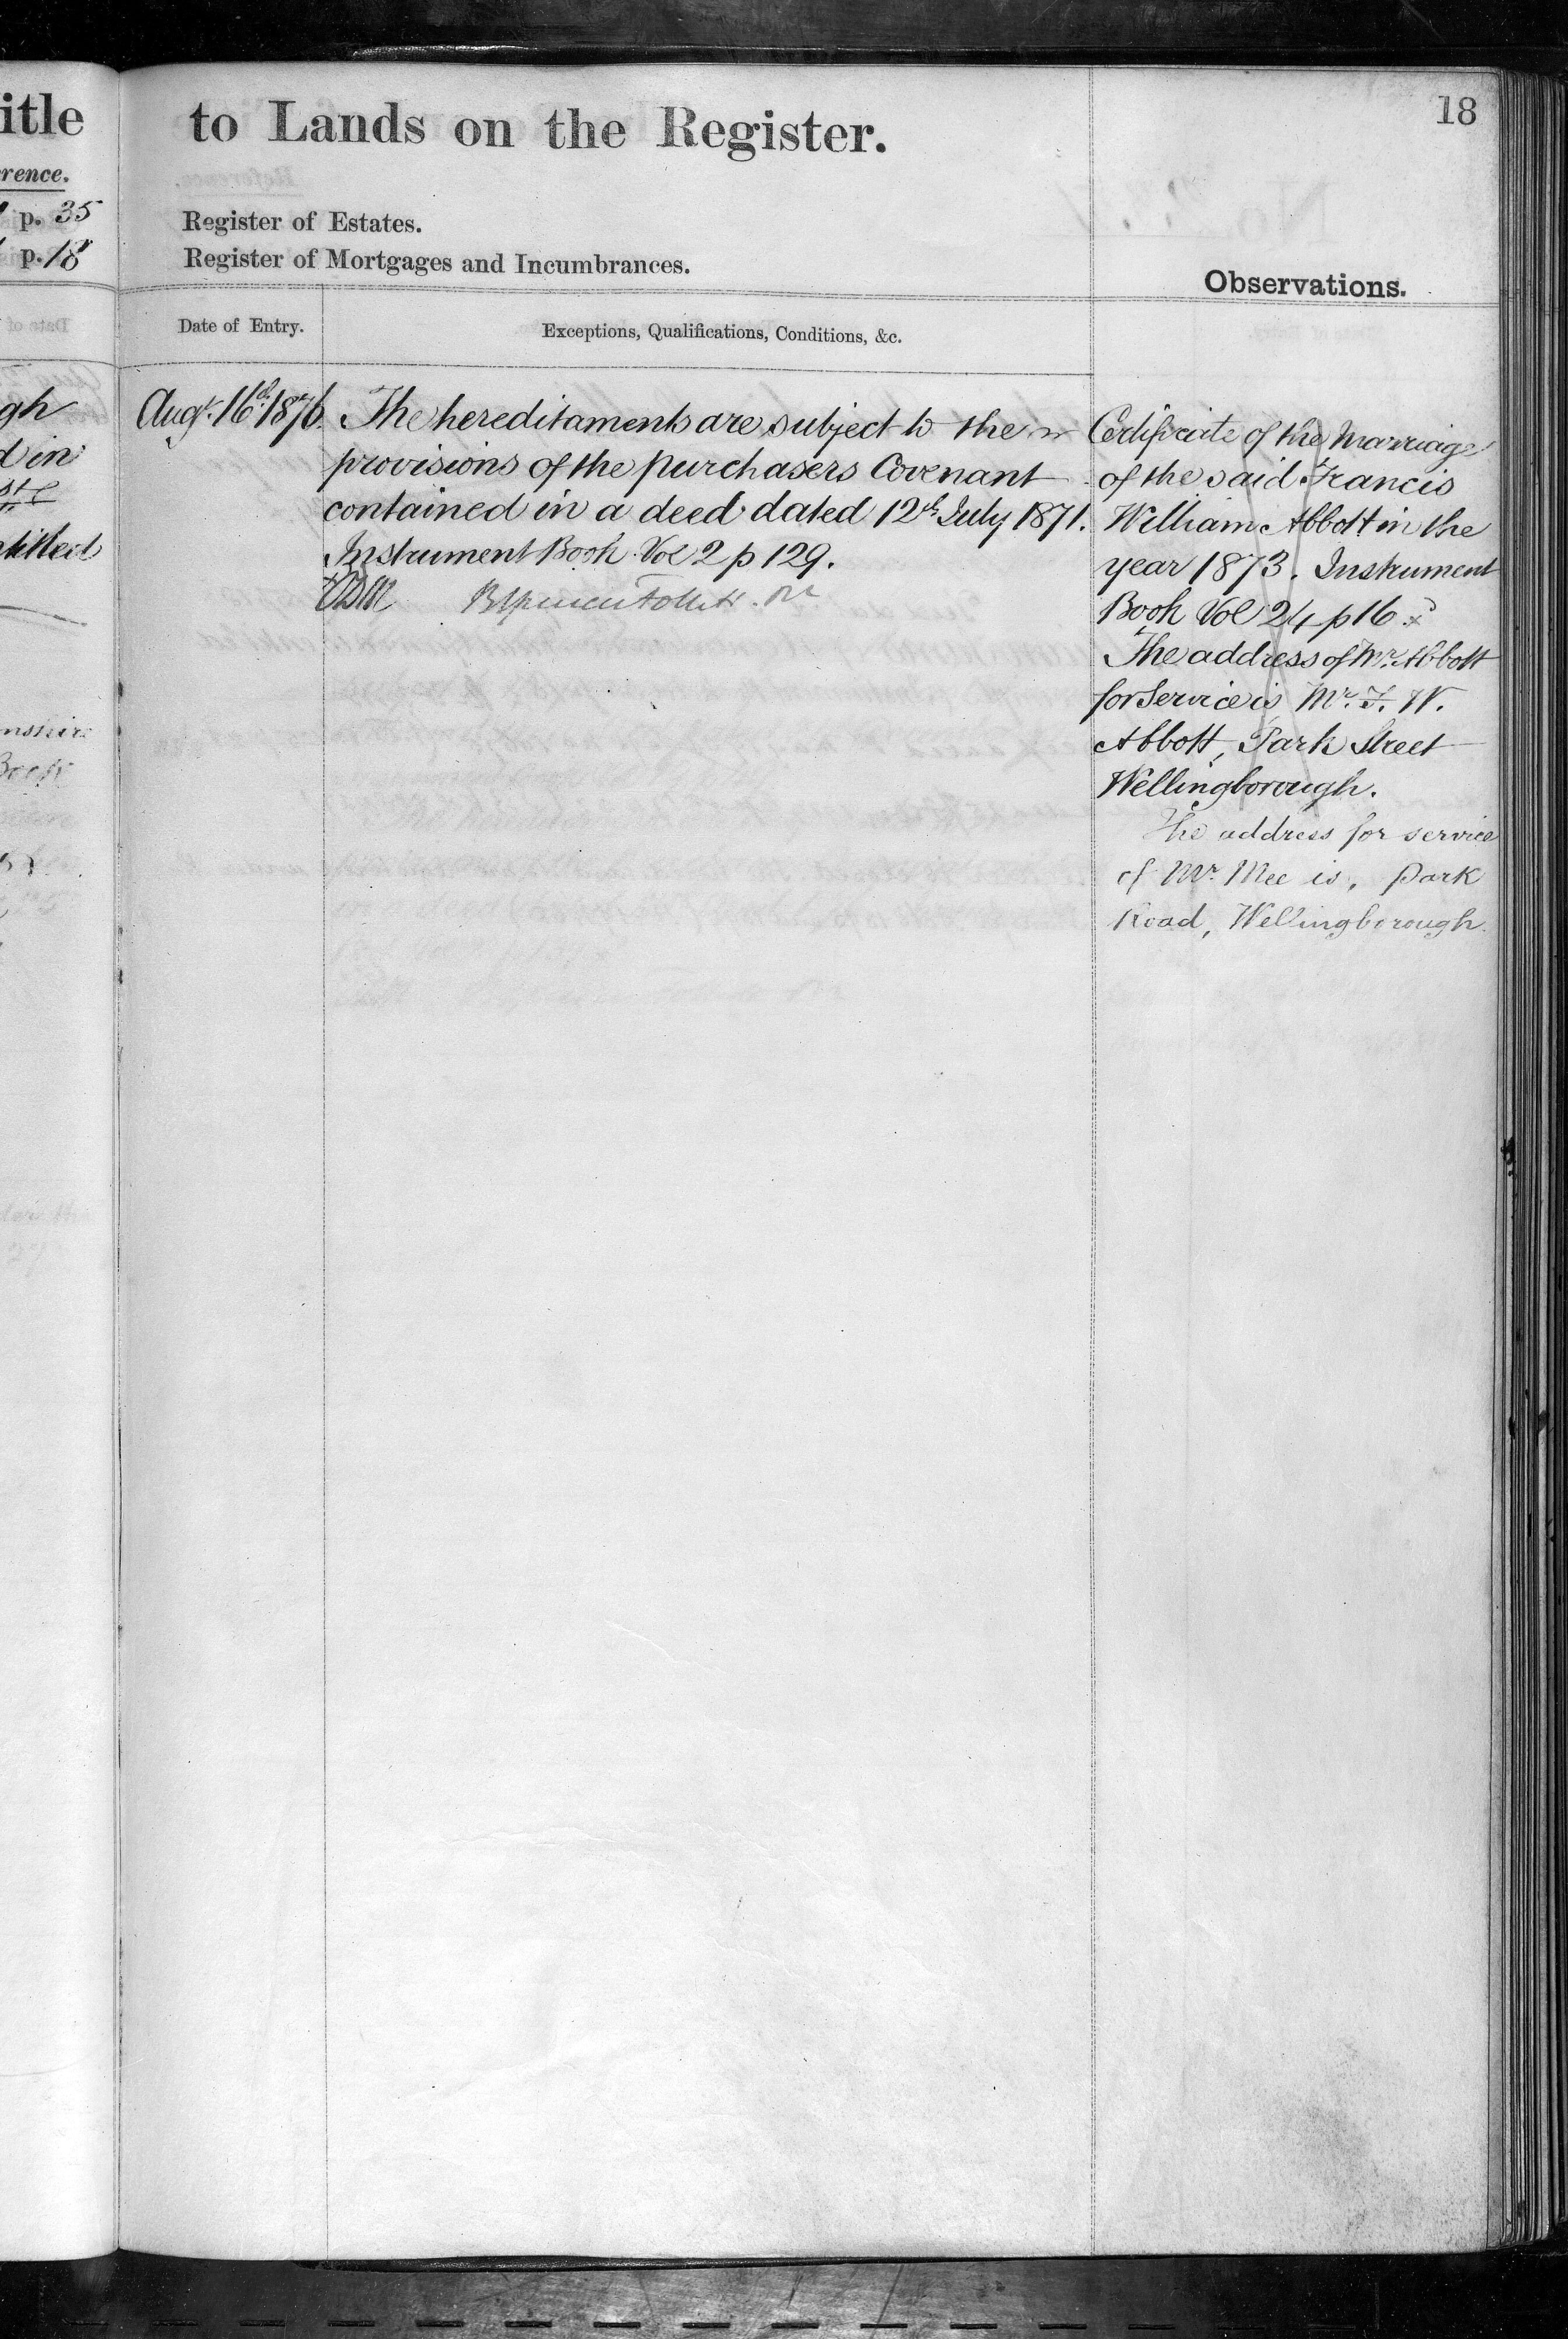 itle
rence.
p. 35
p. 18
gh
d in
ntitled
18
to Lands on the Register.
Register of Estates.
Register of Mortgages and Incumbrances.
Date of Entry.
Exceptions, Qualifications, Conditions, &c.
Augt. 16th 1876.
The hereditaments are subject to the
provisions of the purchasers Covenant
contained in a deed dated 12th July 1871.
Instrument Book Vol 2 p 129.
Observations.
Certificate of the Marriage
of the said Francis
William Abbott in the
year 1873. Instrument
Book Vol 24 p 16
The address of Mr. Abbott
for Service is Mr. F. W.
Abbott, Park Street
Wellingborough.
The address for service
of Mr. Mee is, Park
Road, Wellingborough.